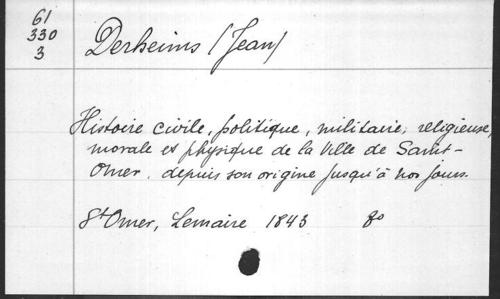 61
330
3
Derheims (Jean)
Histoire civile, politique, militaire, religieuse,
morale et physique de la Ville de Saint-
Omer. depuis son origine jusqu'à nos jours.
St Omer, Lemaire 1843 8o